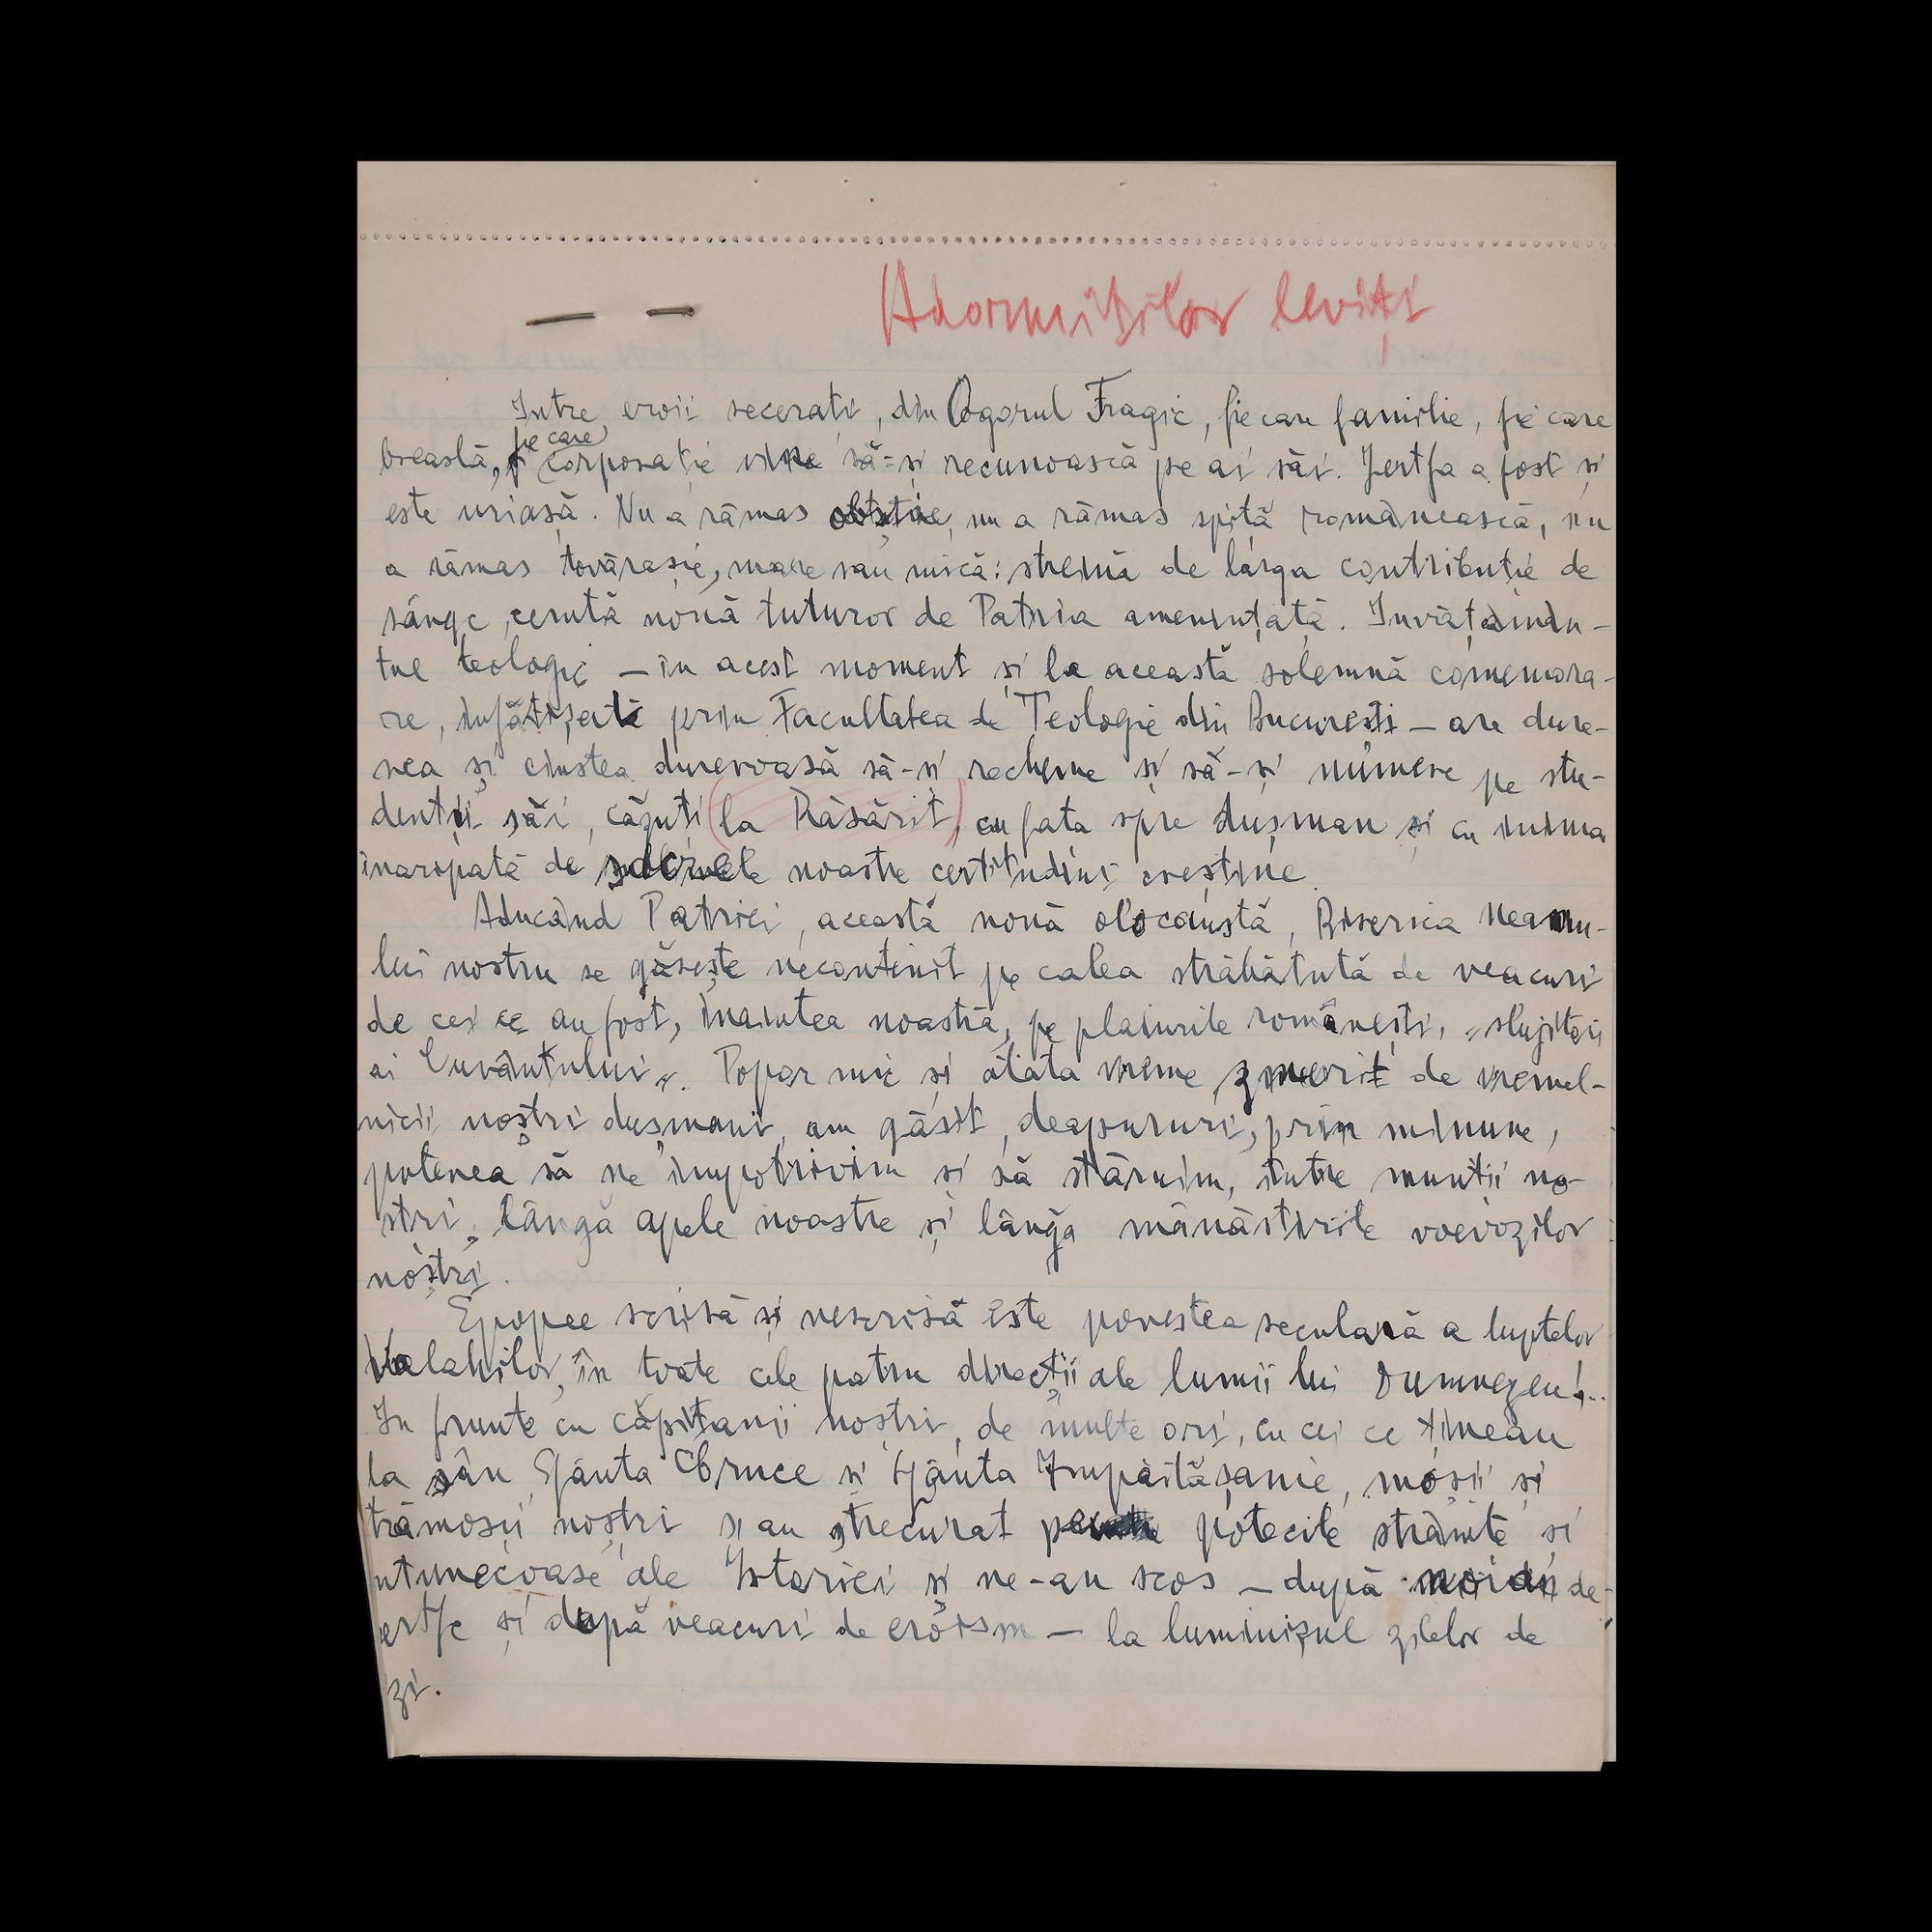 Adormiților leviți
Intre eroii secerați, din Ogorul Tragic, fiecare familie, fiecare
breaslă, fiecare corporație vine să-și recunoască pe ai săi. Jertfa a fost și
este uriașă. Nu a rămas obștie, nu a rămas spiță românească, nu
a rămas tovărășie, mare sau mică: streină de larga contribuție de
sânge cerută nouă tuturor de Patria amenințată. Invățămân-
tul teologic — în acest moment și la această solemnă comemora-
re, înfățișat prin Facultatea de Teologie din București — are dure-
rea și cinstea dureroasă să-și recheme și să-și numere pe stu-
denții săi, căzuți la Răsărit, cu fața spre dușman și cu inima
inaripată de noastre certitudini creștine.
Aducând Patriei, această nouă olocaustă, Biserica Neamu-
lui nostru se găsește necontenit pe calea străbătută de veacuri
de cei ce au fost, înaintea noastră, pe plaiurile românești, „slujitori
ai Cuvântului„. Popor mic și atâta vreme zmerit de vremel-
nicii noștri dușmani, am găsit, deapururi, prin minune,
puterea să ne împotrivim și să stăruim, între munții no-
stri, lângă apele noastre și lângă mânăstirile voevozilor
noștri.
Epopee scrisă și nescrisă este povestea seculară a luptelor
Valahilor, în toate cele patru direcții ale lumii lui Dumnezeu!..
In frunte cu căpitanii noștri, de multe ori, cu cei ce țineau
la sân Sfânta Cruce și Sfânta Impărtășanie, moșii și
trămoșii noștri și-au strecurat potecile strâmte și
ntunecoase ale Istoriei și ne-au scos — după noian de
jertfe și după veacuri de eroism — la luminișul zilelor de
zi.